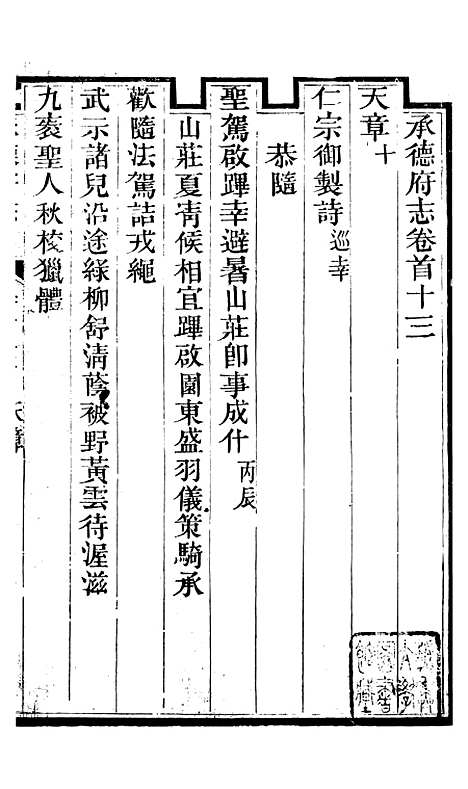 承德府志卷首十三
天章十
仁宗御製詩巡幸
恭隨
聖駕啟蹕幸避暑山莊卽事成什丙辰
山莊夏靑候相宜蹕啟園東盛羽儀策騎承
歡隨法駕詰戎繩
武示諸兒沿途綠柳舒淸蔭被野黃雲待渥滋
九袠聖人秋梭獵體